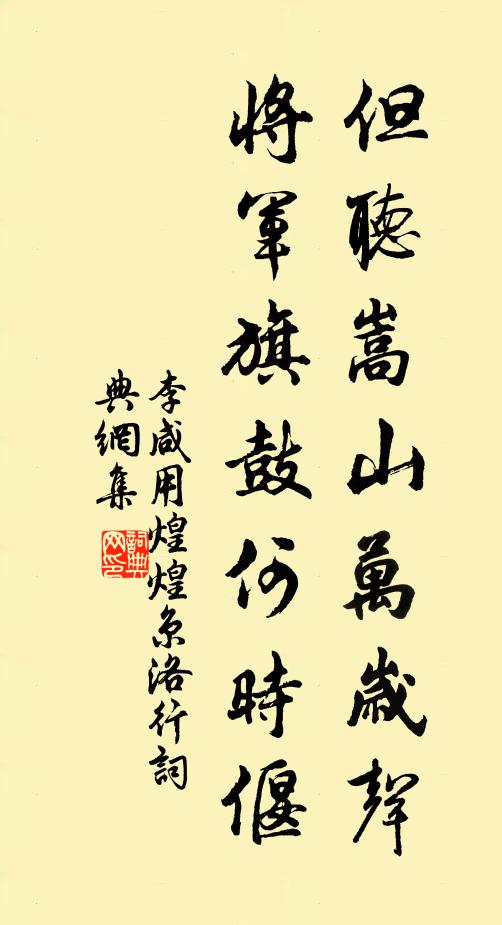 但聽嵩山萬歲聲
將軍旗鼓何時偃
李咸用煌煌京洛行詞
典網集
詞典
网印